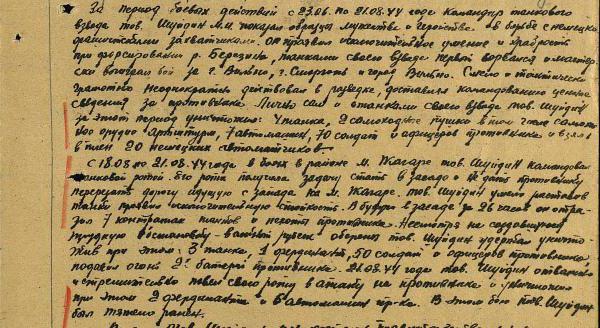 За период боевых действий с 23.06. по 21.08.44 года командир танкового
взвода тов. Шуйдин М.И. показал образцы мужества и геройства в борьбе с немецко
фашистскими захватчиками. Он проявил исключительное умение и храбрость
при форсировании р. Березина, танками своего взвода первый ворвался и мастер
ски вел бой за г. Вильно, г. Сморгонь и город Вильно. Смело и тактически
грамотно неоднократно действовал в разведке, доставляя командованию ценные
сведения за противника. Лично сам и танками своего взвода тов. Шуйдин
за этот период уничтожил: 4 танка, 2 самоходные пушки в том числе самоход
ное орудие Артштурм, 7 автомашин, 70 солдат и офицеров противника и взял
в плен 20 немецких автоматчиков.
С 18.08 по 21.08.44 года в боях в районе М. Жагаре тов. Шуйдин командовал
танковой ротой. Его рота получила задачу стать в засаду и не дать противнику
перерезать дорогу идущую с запада на М. Жагаре. тов. Шуйдин умело расставив
танки проявил исключительную стойкость. Будучи в засаде за 26 часов он отра-
зил 7 контратак танков и пехоты противника. Несмотря на создавшуюся
трудную обстановку важный рубеж обороны тов. Шуйдин удержал уничто-
жив при этом: 3 танка, 1 фердинанд, 50 солдат и офицеров противника,
подавил огонь 2х батарей противника. 21.08.44 года тов. Шуйдин отважно
и стремительно повел свою роту в атаку на противника и уничтожил
при этом 2 фердинанта и 6 автомашин пр-ка. В этом бою тов. Шуйдин
был тяжело ранен.